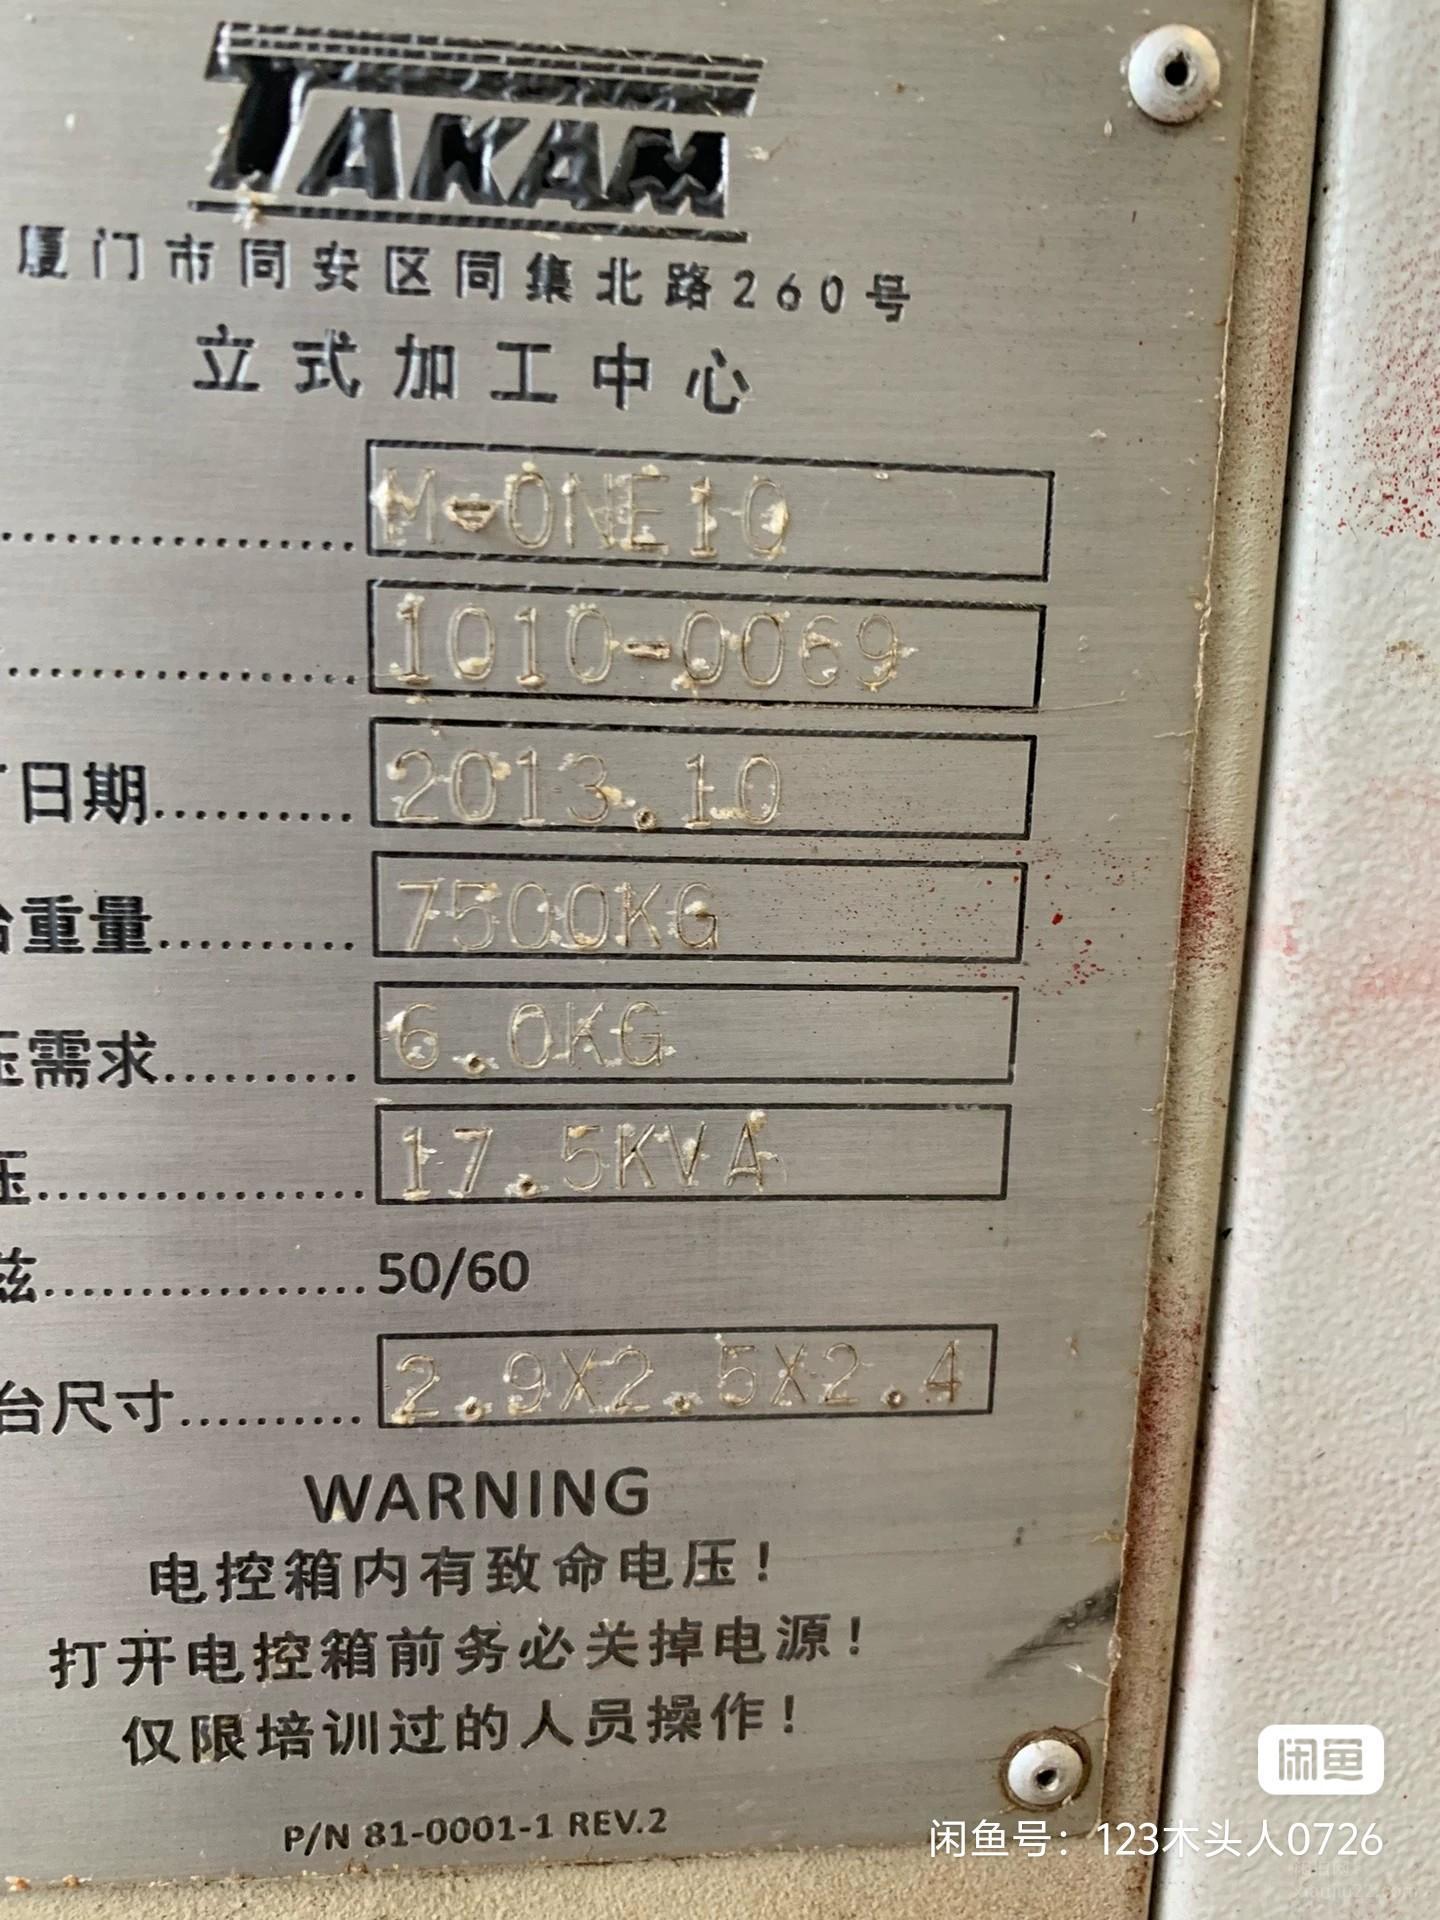 TAKAM
厦门市同安区同集北路260号
立式加工中心
M-ONE10
1010-0069
日期.......... 2013.10
重量.......... 7500KG
需求.......... 6.0KG
压................. 17.5KVA
兹................. 50/60
台尺寸.......... 2.9X2.5X2.4
WARNING
电控箱内有致命电压！
打开电控箱前务必关掉电源！
仅限培训过的人员操作！
P/N 81-0001-1 REV.2
闲鱼
闲鱼号：123木头人0726